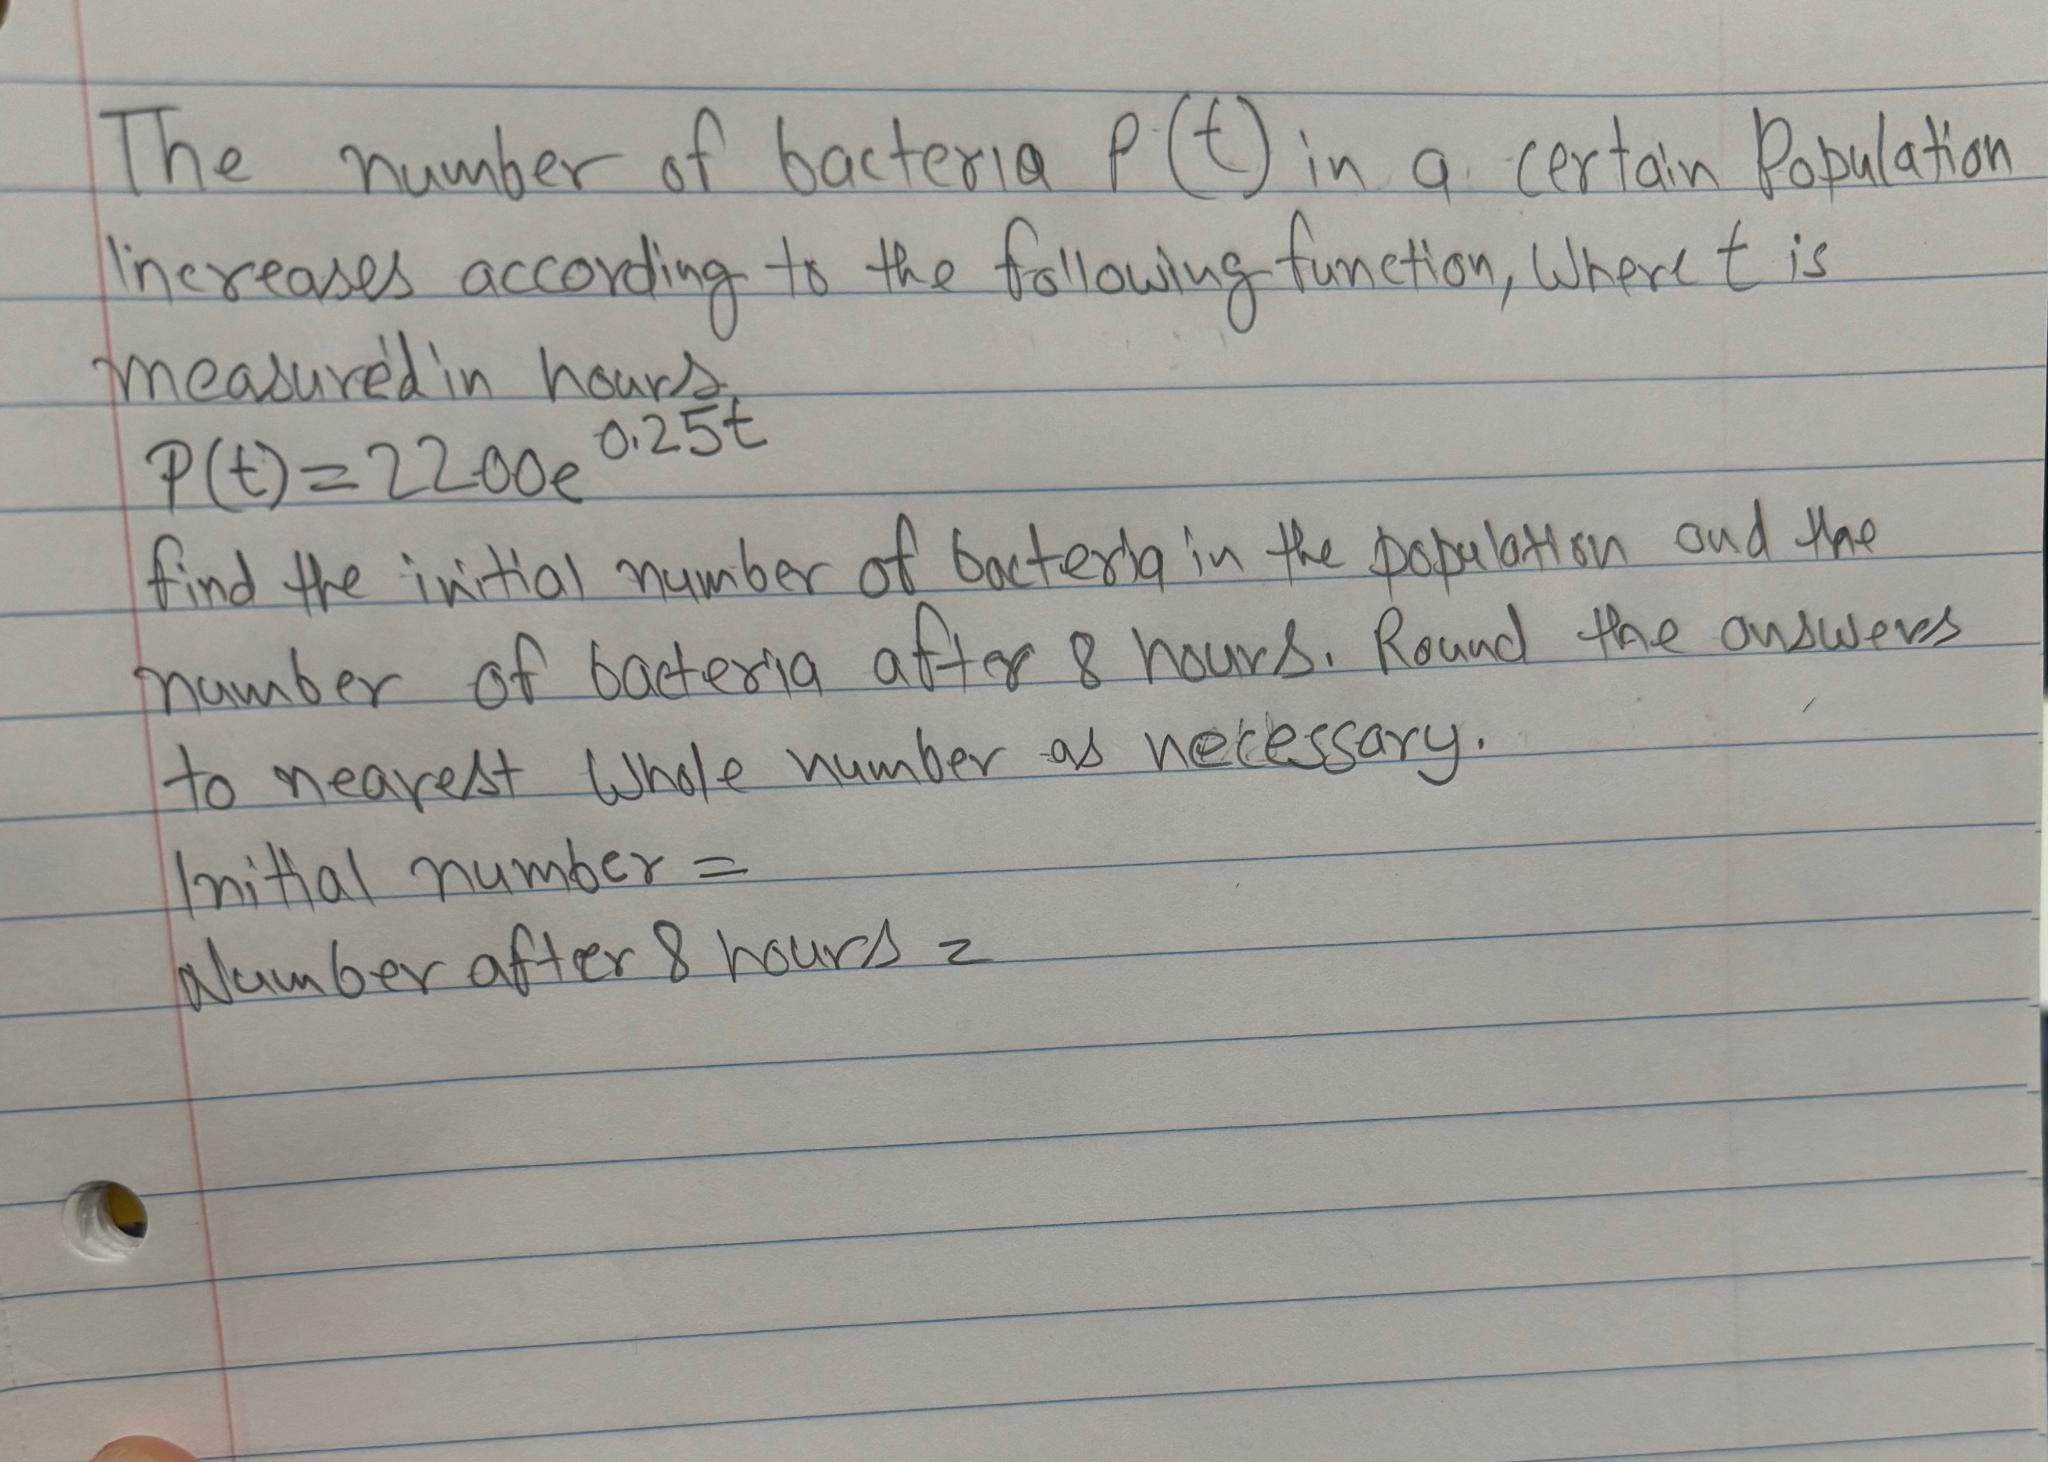 The number of bacteria P(t) in a certain Population
increases according to the following function, Where t is
measured in hours.
P(t) = 2200e^0.25t
find the initial number of bacteria in the population and the
number of bacteria after 8 hours. Round the answers
to nearest Whole number as necessary.
Initial number =
Number after 8 hours =